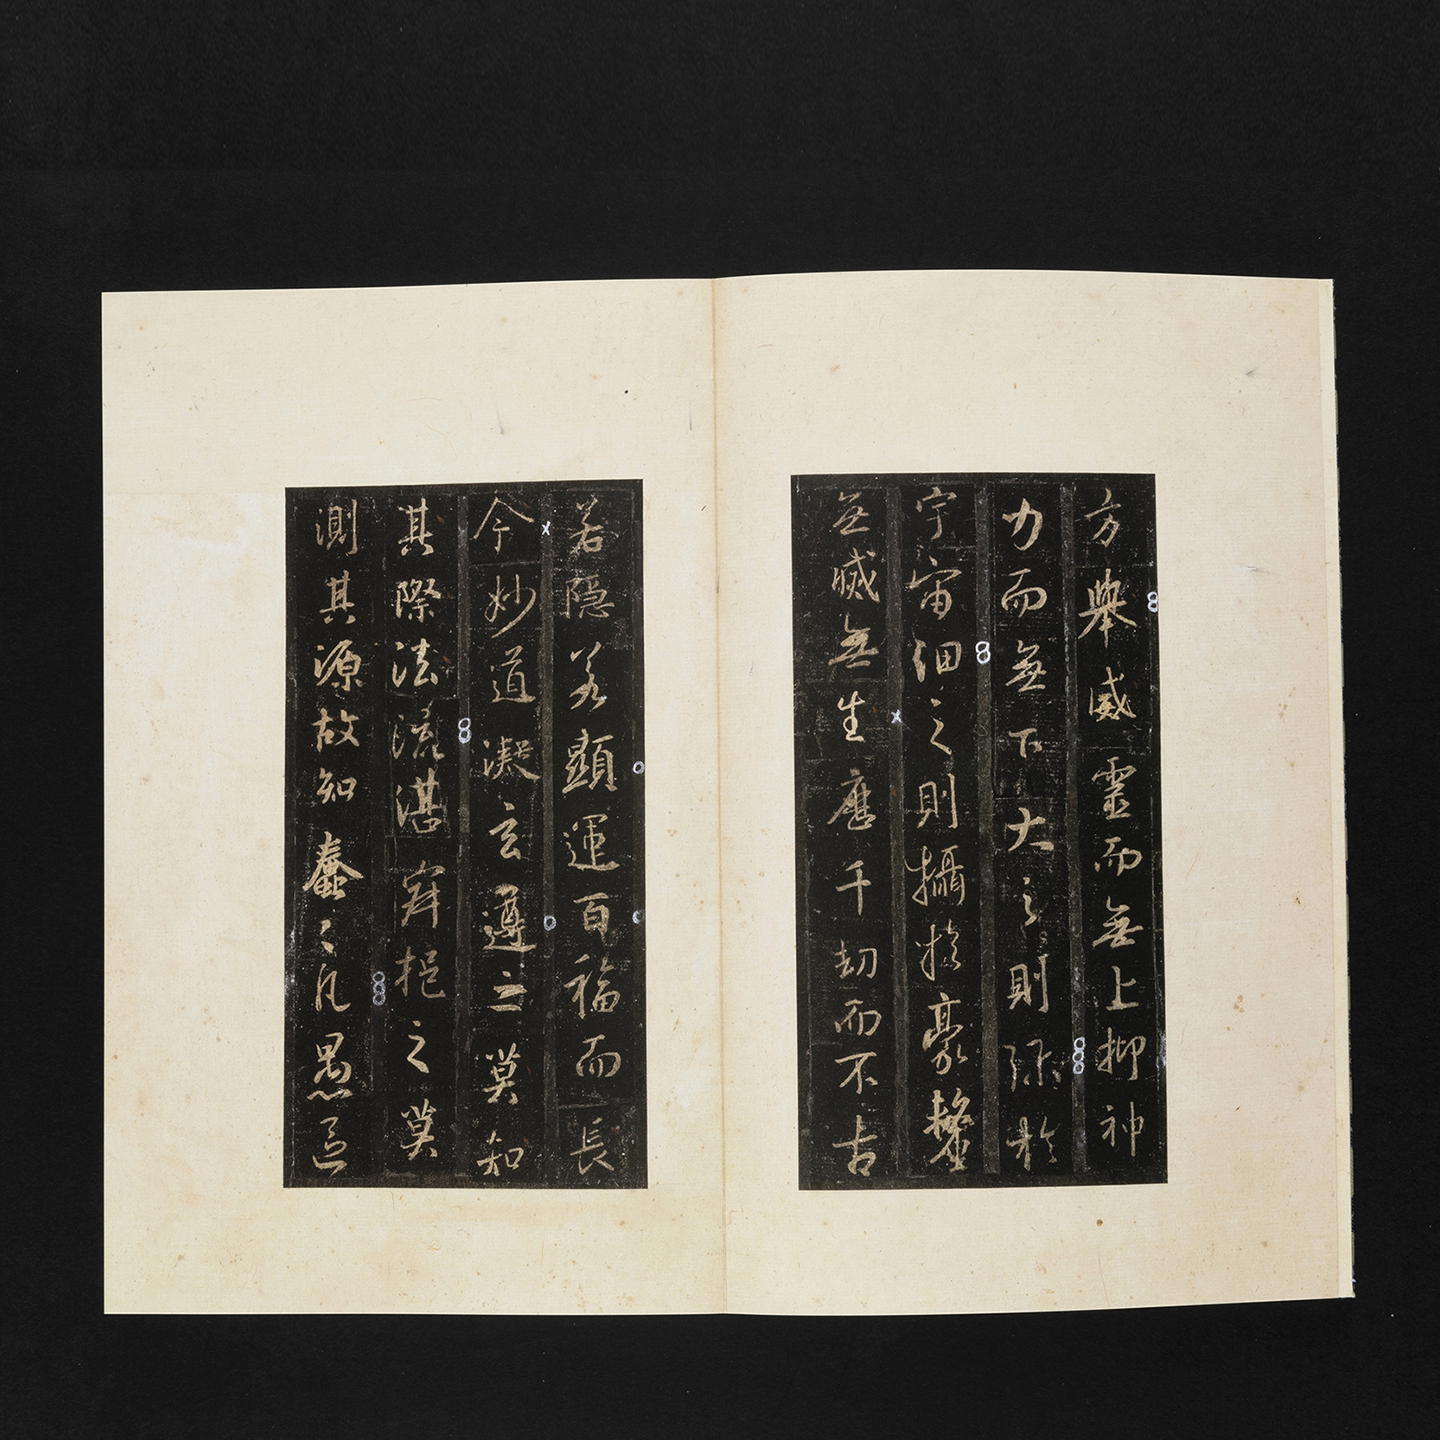 方舉威靈而無上抑神
力而無下大之則彌於
宇宙細之則攝於豪釐
無滅無生歷千劫而不古
若隱若顯運百福而長
今妙道凝玄遵之莫知
其際法流湛寂挹之莫
測其源故知蠢蠢凡愚區